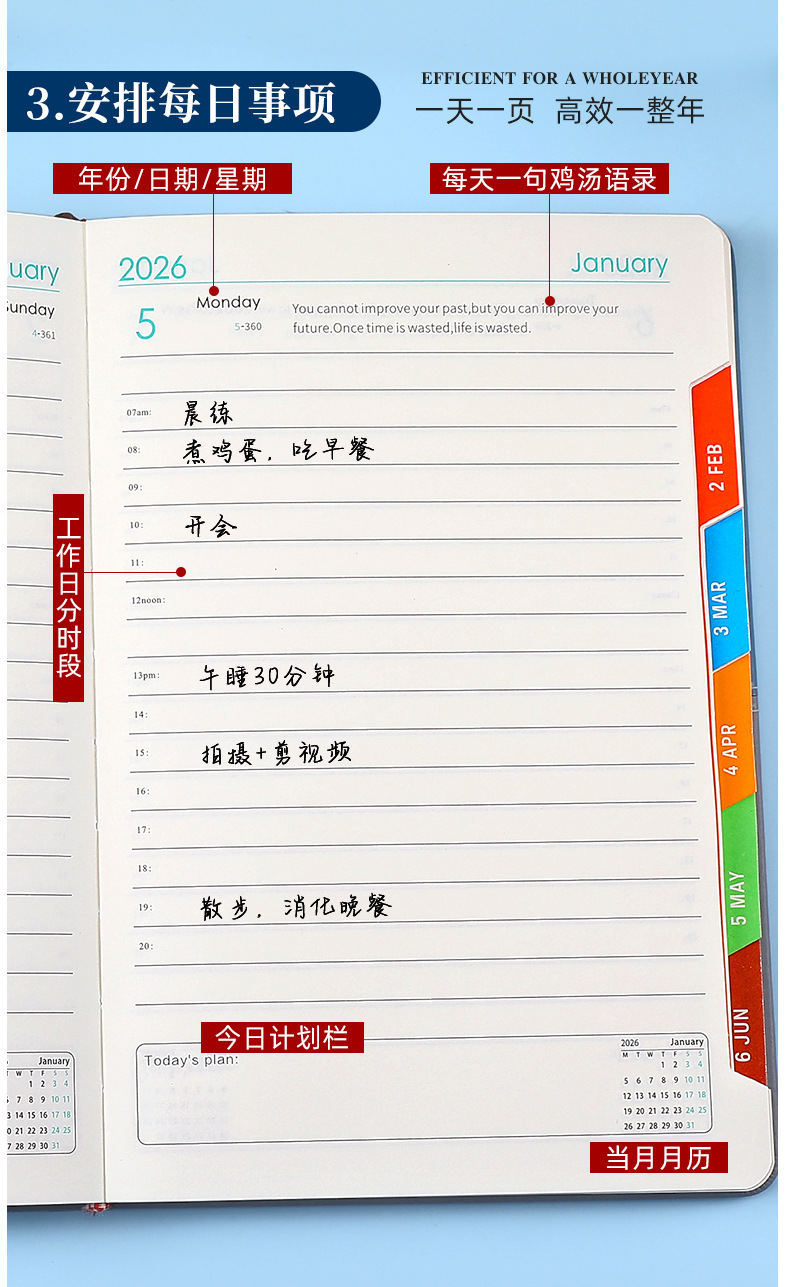 3.安排每日事项
EFFICIENT FOR A WHOLEYEAR
一天一页 高效一整年
年份/日期/星期
每天一句鸡汤语录
uary
2026
January
Sunday
4-361
5
Monday
5-360
You cannot improve your past,but you can improve your
future.Once time is wasted,life is wasted.
07am: 晨练
08: 煮鸡蛋，吃早餐
09:
10: 开会
11:
12noon:
13pm: 午睡30分钟
14:
15: 拍摄+剪视频
16:
17:
18:
19: 散步，消化晚餐
20:
工作日分时段
2 FEB
3 MAR
4 APR
5 MAY
6 JUN
今日计划栏
Today's plan:
2026 January
M T W T F S S
1 2 3 4
5 6 7 8 9 10 11
12 13 14 15 16 17 18
19 20 21 22 23 24 25
26 27 28 29 30 31
January
T W T F S S
1 2 3 4
7 8 9 10 11
14 15 16 17 18
20 21 22 23 24 25
27 28 29 30 31
当月月历